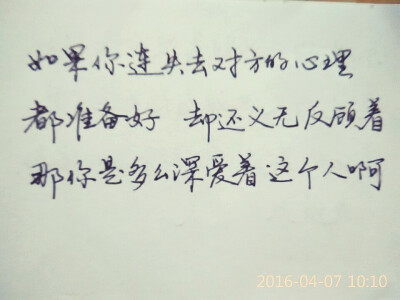 如果你连失去对方的心理
都准备好 却还义无反顾着
那你是多么深爱着这个人啊
2016-04-07 10:10